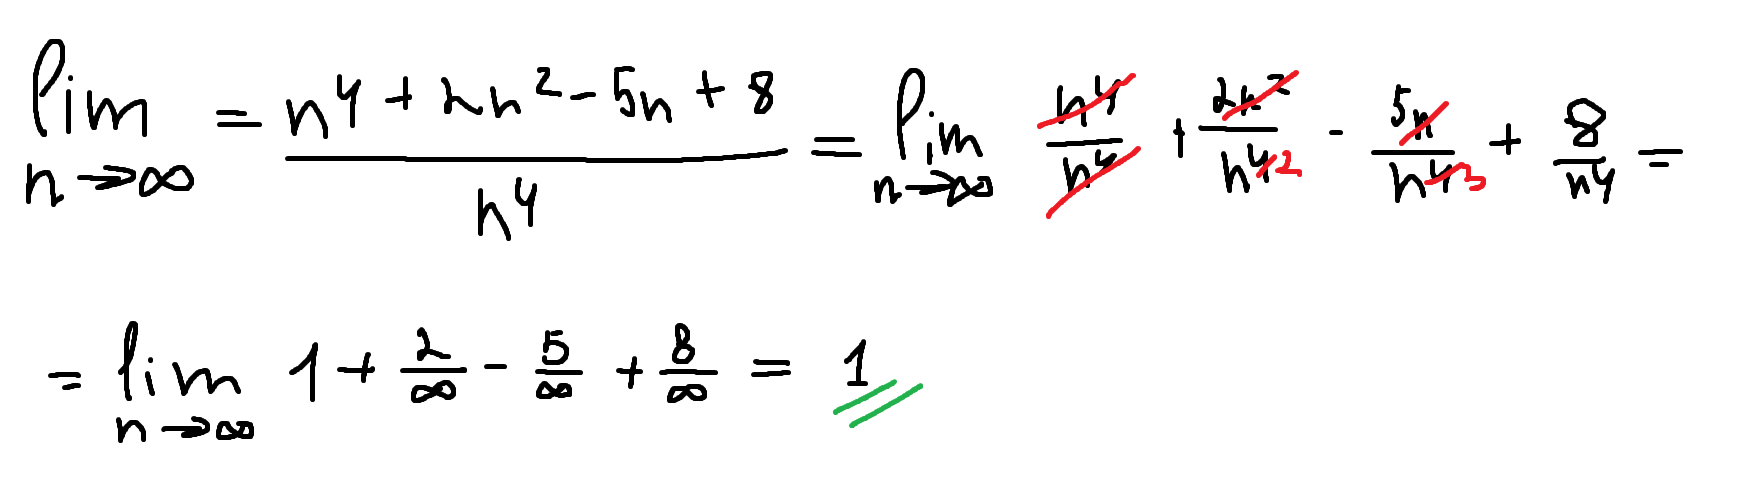 lim n→∞ = (n⁴ + 2n² - 5n + 8)/n⁴ = lim n→∞ n⁴/n⁴ + 2n²/n⁴ 2 - 5n/n⁴ 3 + 8/n⁴ =
= lim n→∞ 1 + 2/∞ - 5/∞ + 8/∞ = 1